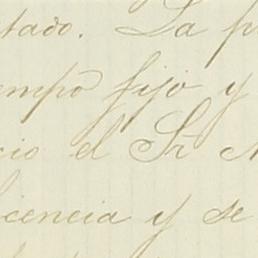 tado. La p
empo fijo y
cio el Sr. N
licencia y se